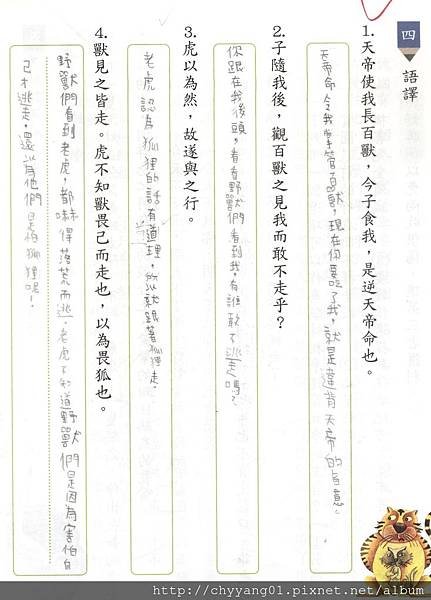 四 語譯
1.天帝使我長百獸，今子食我，是逆天帝命也。
天帝命令我掌管百獸，現在你要吃了我，就是違背天帝的旨意。
2.子隨我後，觀百獸之見我而敢不走乎？
你跟在我後頭，看看野獸們看到我，有誰敢不逃走嗎？
3.虎以為然，故遂與之行。
老虎認為狐狸的話有道理，所以就跟著狐狸走。
4.獸見之皆走。虎不知獸畏己而走也，以為畏狐也。
野獸們看到老虎，都嚇得落荒而逃，老虎不知道野獸們是因為害怕自
己才逃走，還以為他們是怕狐狸呢！
http://chyyang01.pixnet.net/album